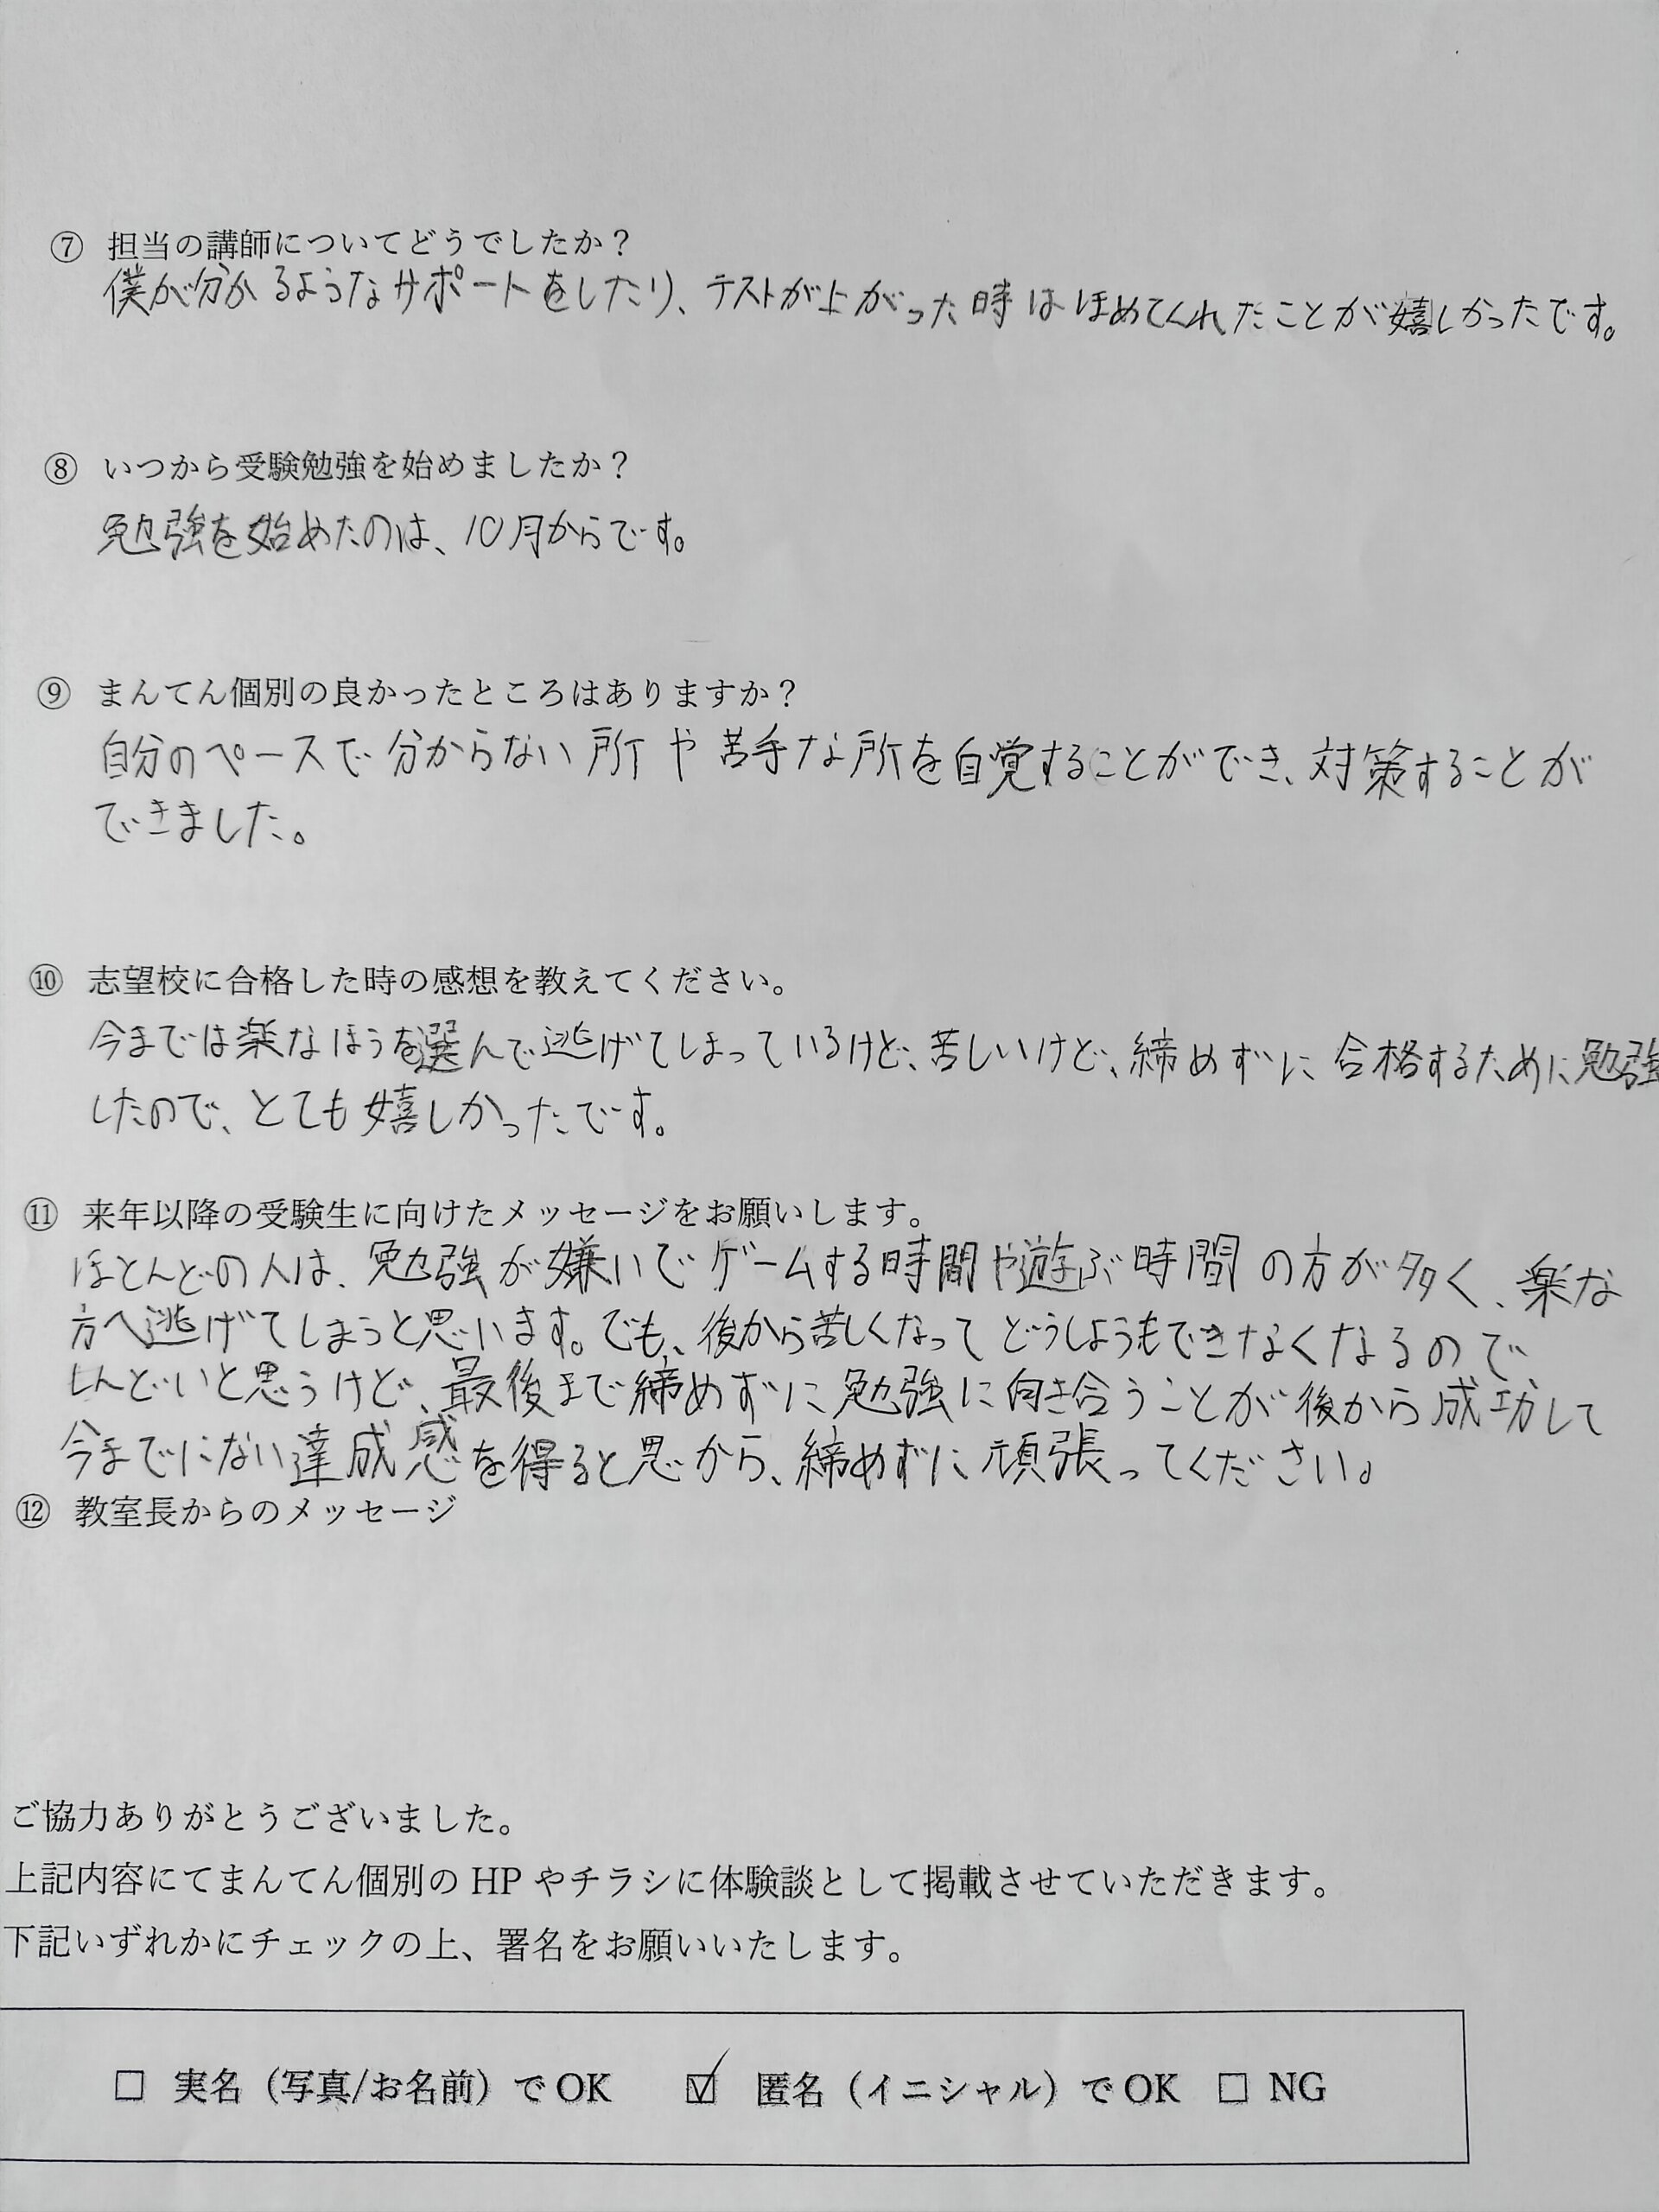 ⑦ 担当の講師についてどうでしたか？
僕が分かるようなサポートをしたり、テストが上がった時はほめてくれたことが嬉しかったです。
⑧ いつから受験勉強を始めましたか？
勉強を始めたのは、10月からです。
⑨ まんてん個別の良かったところはありますか？
自分のペースで分からない所や苦手な所を自覚することができ、対策することが
できました。
⑩ 志望校に合格した時の感想を教えてください。
今までは楽なほうを選んで逃げてしまっているけど、苦しいけど、締めずに合格するために勉強
したので、とても嬉しかったです。
⑪ 来年以降の受験生に向けたメッセージをお願いします。
ほとんどの人は、勉強が嫌いでゲームする時間や遊ぶ時間の方が多く、楽な
方へ逃げてしまうと思います。でも、後から苦しくなってどうしようもできなくなるので、
しんどいと思うけど、最後まで締めずに勉強に向き合うことが後から成功して
今までにない達成感を得ると思から、締めずに頑張ってください。
⑫ 教室長からのメッセージ
ご協力ありがとうございました。
上記内容にてまんてん個別の HP やチラシに体験談として掲載させていただきます。
下記いずれかにチェックの上、署名をお願いいたします。
□ 実名（写真/お名前）で OK ☑ 匿名（イニシャル）で OK □ NG